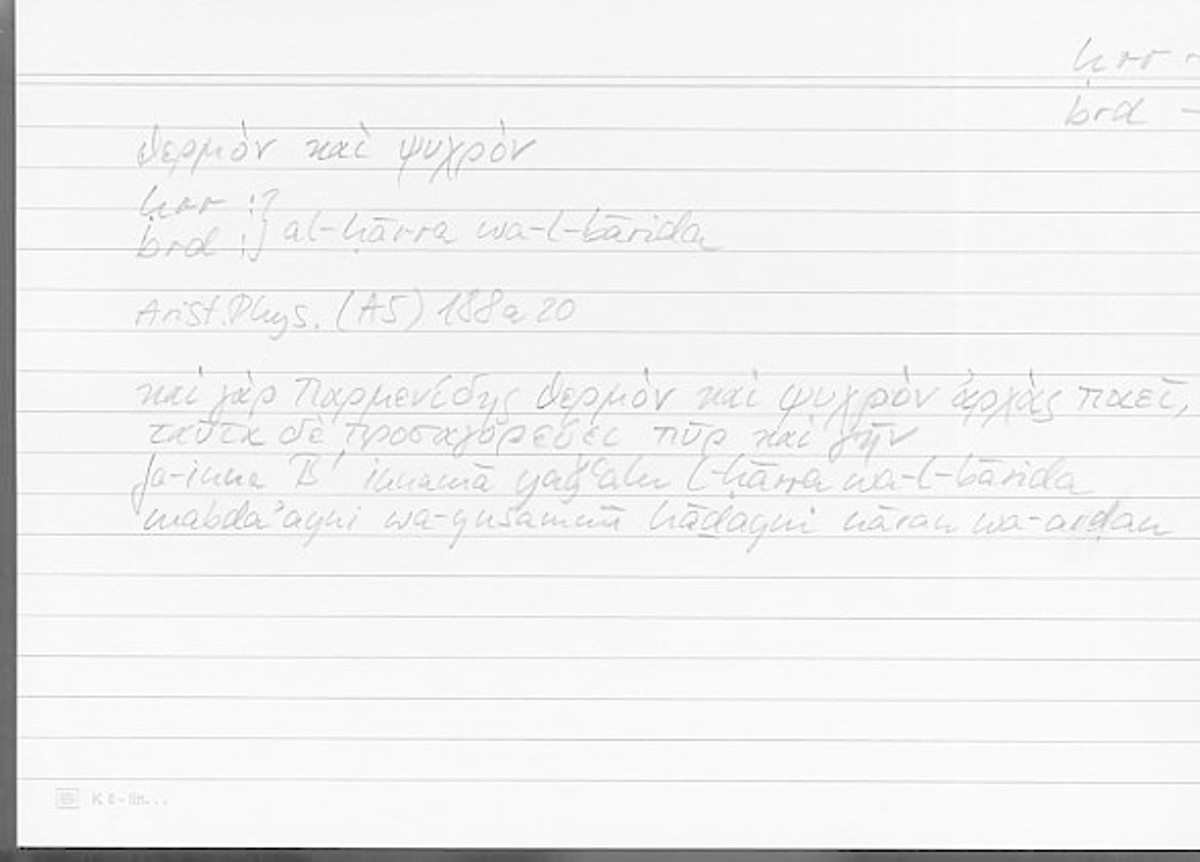 ḥrr
brd —
θερμὸν καὶ ψυχρὸν
ḥrr :
brd : } al-ḥārra wa-l-bārida
Arist. Phys. (A5) 188a20
καὶ γὰρ Παρμενίδης θερμὸν καὶ ψυχρὸν ἀρχὰς ποιεῖ,
ταῦτα δὲ προσαγορεύει πῦρ καὶ γῆν
fa-inna B' innamā yaǧʿalu l-ḥārra wa-l-bārida
mabdaʾayni wa-yusammī hāḏayni nāran wa-arḍan